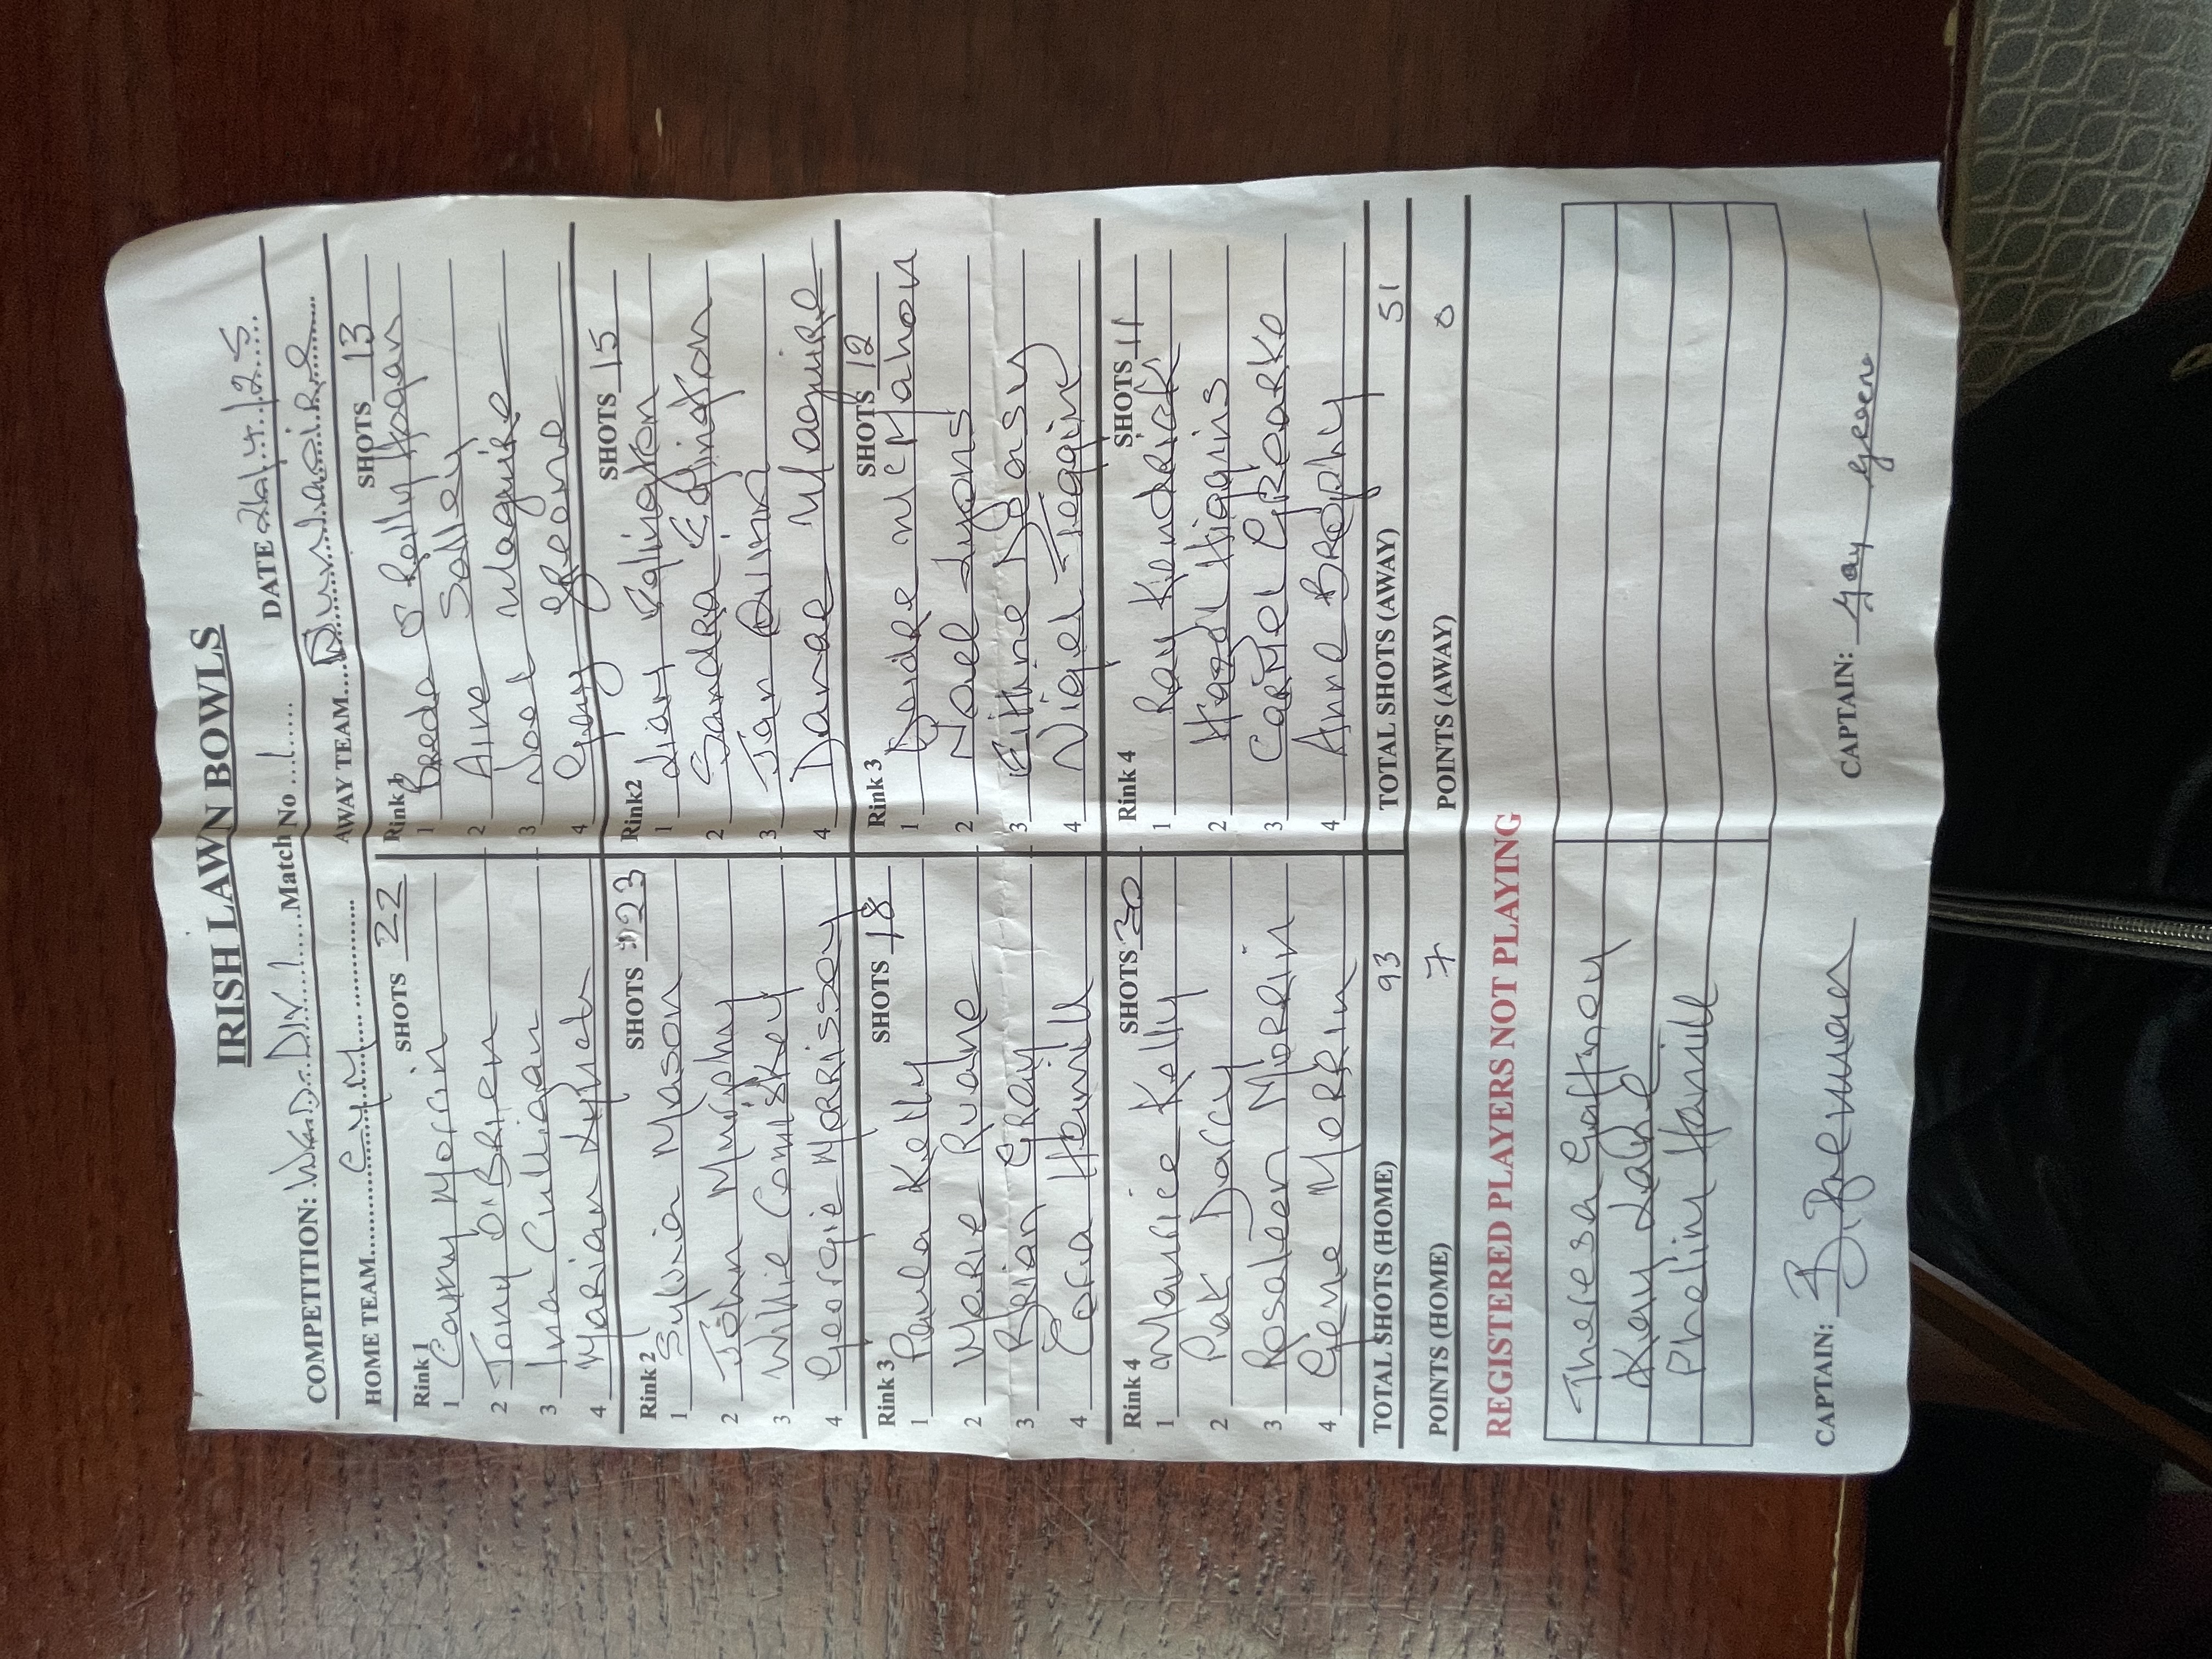 IRISH LAWN BOWLS
COMPETITION: DIV 1 Match No 1 DATE 26/4/25
HOME TEAM CYM AWAY TEAM Dunlaoire
Rink 1 SHOTS 22 Rink 1 SHOTS 13
1 Camy Morrin 1 Breda O Reilly Hogan
2 Tony O'Brien 2 Aine Solley
3 Ina Culligan 3 Noel Maguire
4 Marian Lynch 4 Gay Greene
Rink 2 SHOTS 23 Rink2 SHOTS 15
1 Sylvia Mason 1 Liam
2 John Murphy 2 Sandra Edginton
3 Willie Comiskey 3 Jan Quinn
4 Georgie Morrissey 4 Danae Maguire
Rink 3 SHOTS 18 Rink 3 SHOTS 12
1 Paula Kelly 1 Deirdre McMahon
2 Marie Ruane 2 Noel Lyons
3 Brian Gray 3 Eithne
4 Cora Hamill 4 Nigel
Rink 4 SHOTS 30 Rink 4 SHOTS 11
1 Maurice Kelly 1 Ray Kendrick
2 Pat Darcy 2 Hazel Higgins
3 Rosaleen Morrin 3 Carmel
4 Gene Morrin 4 Anne Brophy
TOTAL SHOTS (HOME) 93 TOTAL SHOTS (AWAY) 51
POINTS (HOME) 7 POINTS (AWAY) 0
REGISTERED PLAYERS NOT PLAYING
Theresa Gaffney
Kay
Phelim Hamill
CAPTAIN: CAPTAIN: Gay Greene